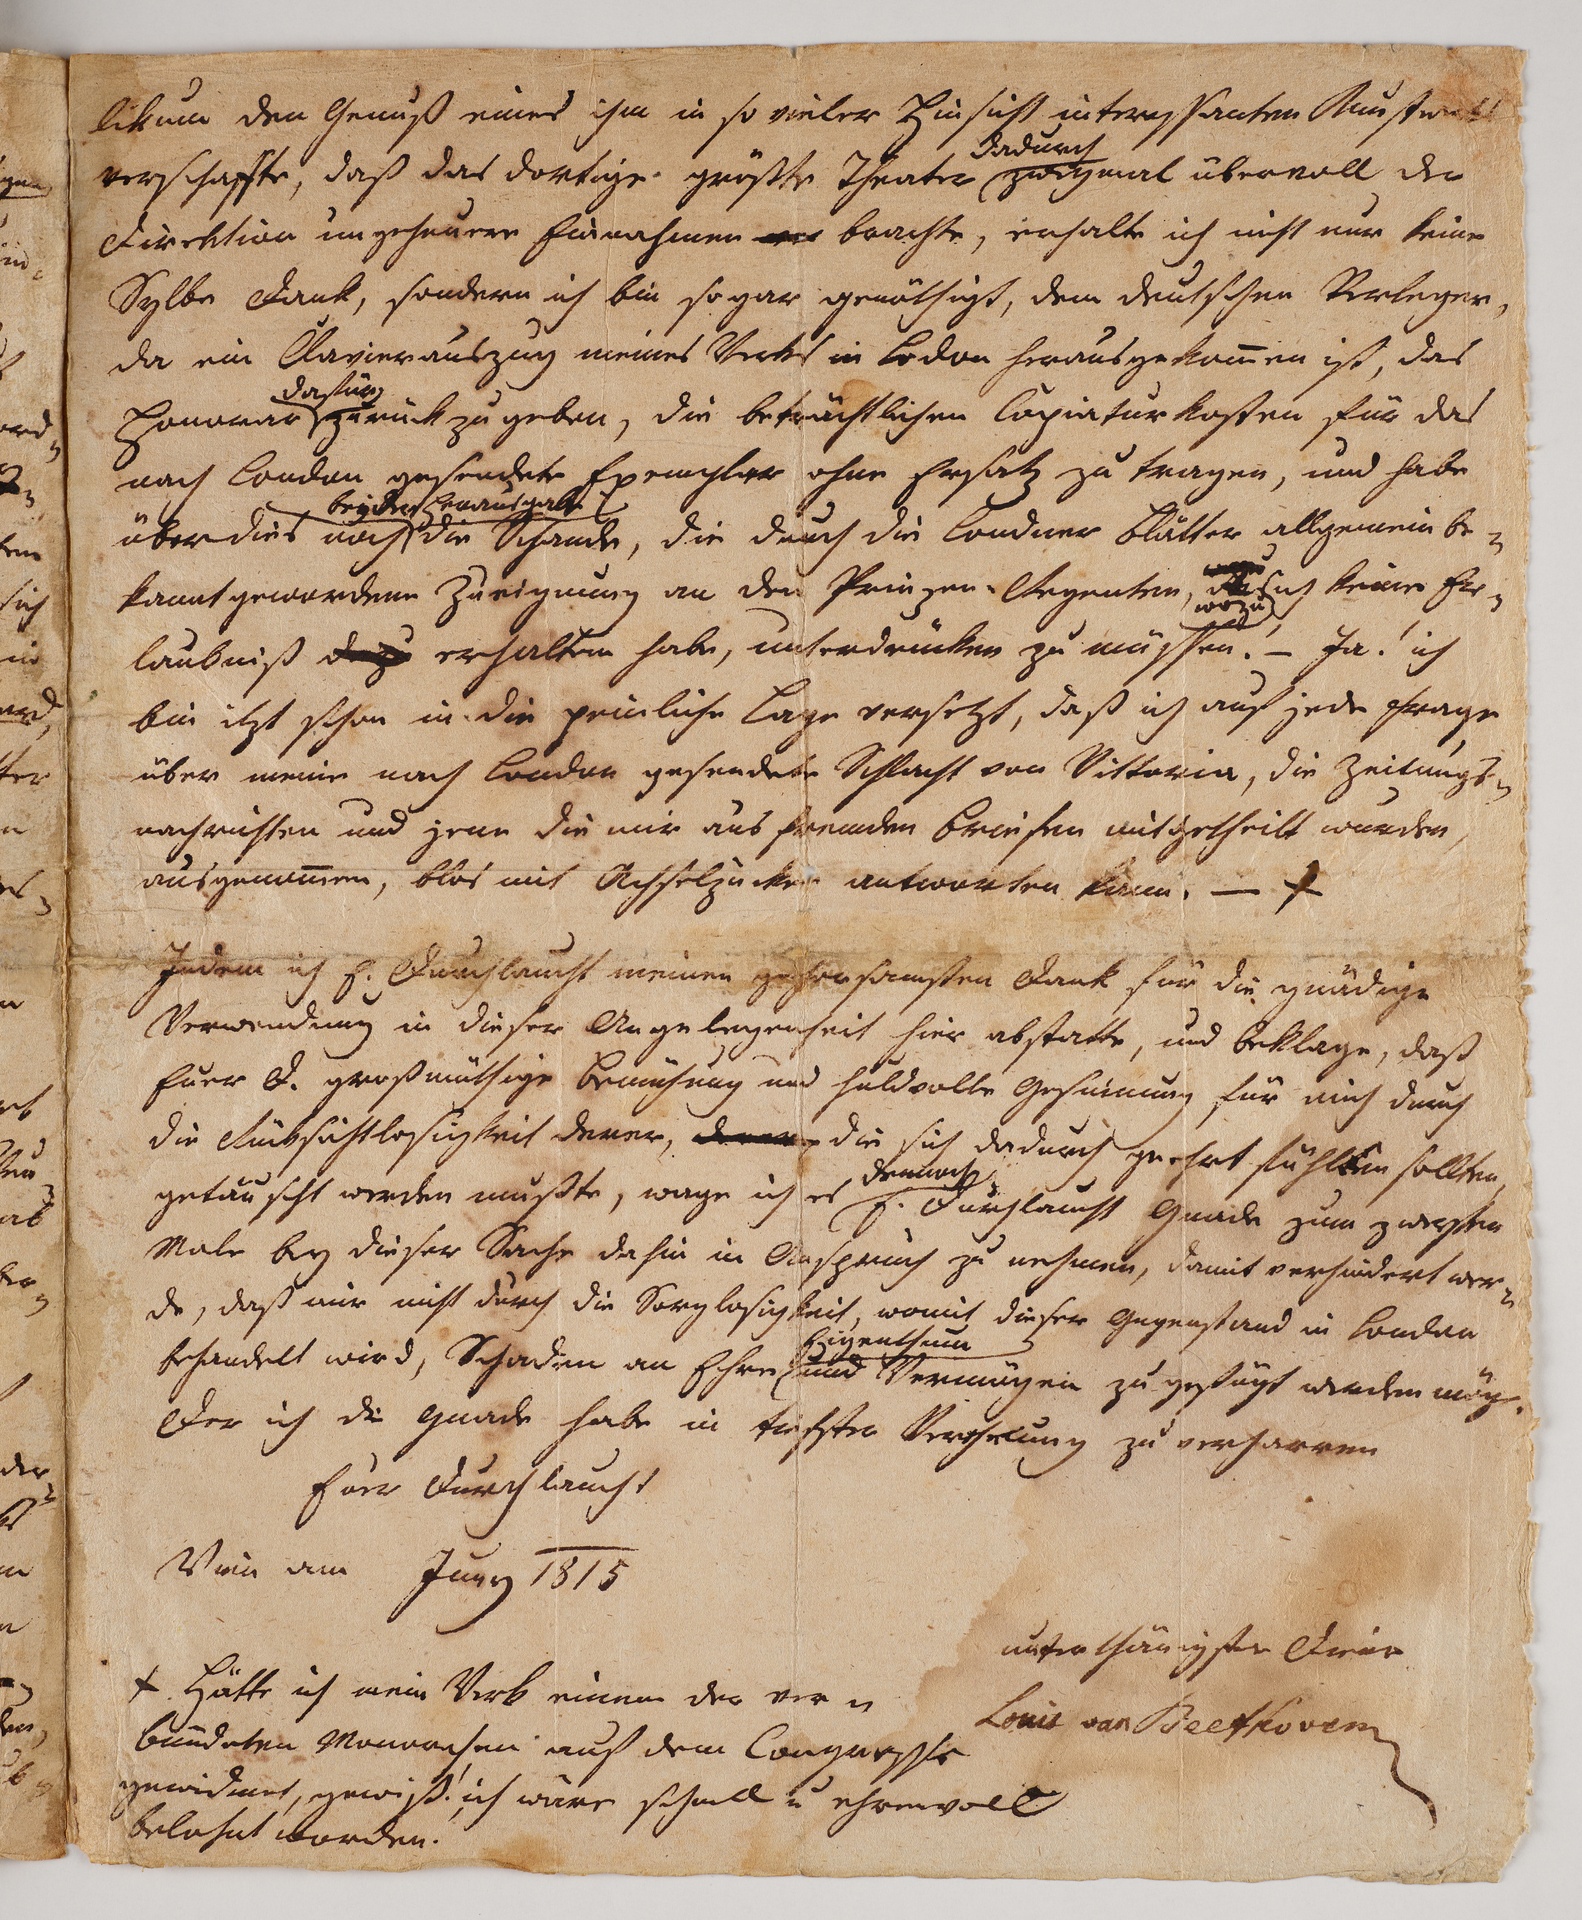 likum den Genuß eines ihm in so vieler Hinsicht interessanten Kunstwerks
dadurch
verschaffte, daß das dortige größte Theater zweymal übervoll der
Direktion ungeheuere Einnahmen brachte, erhalte ich nicht nur keine
Sylbe Dank, sondern ich bin sogar genöthigt, dem deutschen Verleger,
da ein Clavierauszug meines Werks in Lodon herausgekom̅en ist, das
dafür
Honorar zurück zu geben, die beträchtlichen Copiaturkosten für das
nach London gesendete Exemplar ohne Ersatz zu tragen, und habe
bey der Herausgabe
überdies noch die Schande, die durch die Londner Blätter allgemein be-
kanntgewordene Zueignung an den Prinzen-Regenten, ich keine Er-
wozu
laubniß dazu erhalten habe, unterdrücken zu müssen! – Ja! ich
bin itzt schon in die peinliche Lage versetzt, daß ich auf jede Frage
über meine nach London gesendete Schlacht von Vittoria, die Zeitungs-
nachrichten und jene die mir aus fremden Briefen mitgetheilt wurden,
ausgenom̅en, blos mit Achselzucken antworten kann. — +
Indem ich E. Durchlaucht meinen gehorsamsten Dank für die gnädige
Verwendung in dieser Angelegenheit hier abstatte, und beklage, daß
Euer D. großmüthige Bemühung und huldvolle Gesinnung für mich durch
die Rücksichtlosigkeit derer, derer die sich dadurch geehrt fühlen sollten,
dennoch
getäuscht werden mußte, wage ich es E. Durchlaucht Gnade zum zweyten
Male bey dieser Sache dahin in Anspruch zu nehmen, damit verhindert wer-
de, daß mir nicht durch die Sorglosigkeit, womit dieser Gegenstand in London
Eigenthum
behandelt wird, Schaden an Ehre und Vermögen zugefügt werden möge.
Der ich die Gnade habe in tiefster Verehrung zu verharren
Euer Durchlaucht
Wien am Juny 1815
unterthänigster Diener
Louis van Beethoven
+ Hätte ich mein Werk einem der ver-
bündeten Monarchen auf dem Congresse
gewidmet, gewiß! ich wäre schnell u ehrenvoll
belohnt worden.